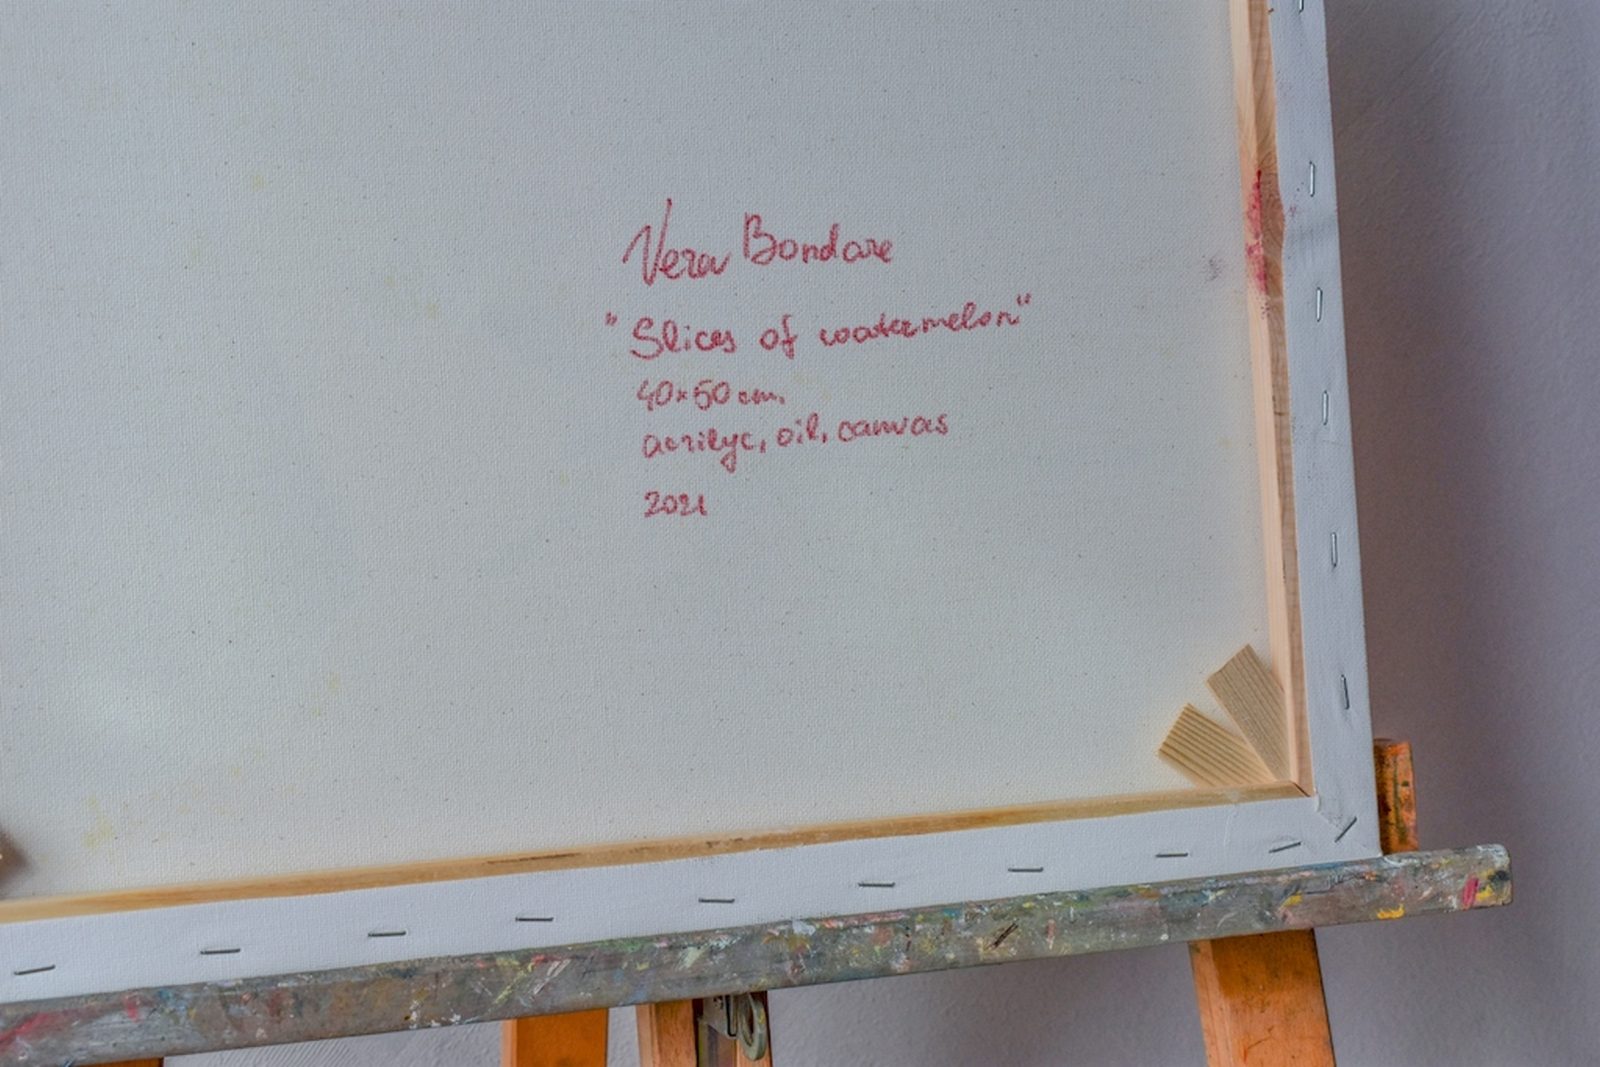 Vera Bondare
"Slices of watermelon"
40×50 cm.
acrilyc, oil, canvas
2021